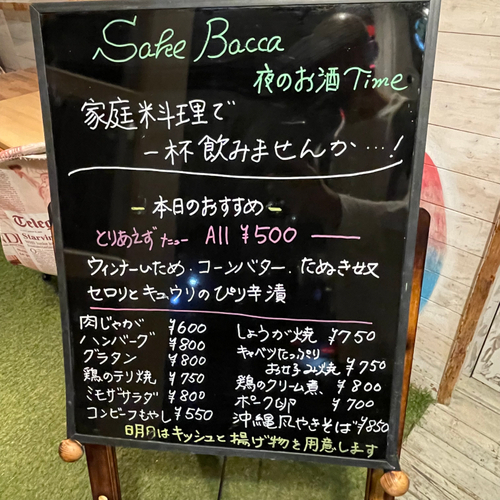 Sake Bacca
夜のお酒Time
家庭料理で
一杯飲みませんか…!
本日のおすすめ
とりあえずメニュー All ¥500
ウィンナーいため・コーンバター・たぬき奴
セロリとキュウリのぴり辛漬
肉じゃが ¥600
ハンバーグ ¥800
グラタン ¥800
鶏のテリ焼 ¥750
ミモザサラダ ¥800
コンビーフもやし ¥550
しょうが焼 ¥750
キャベツたっぷり
お好み焼 ¥750
鶏のクリーム煮 ¥800
ポーク ¥700
沖縄風やきそば ¥850
明日はキッシュと揚げ物を用意します
Teleg